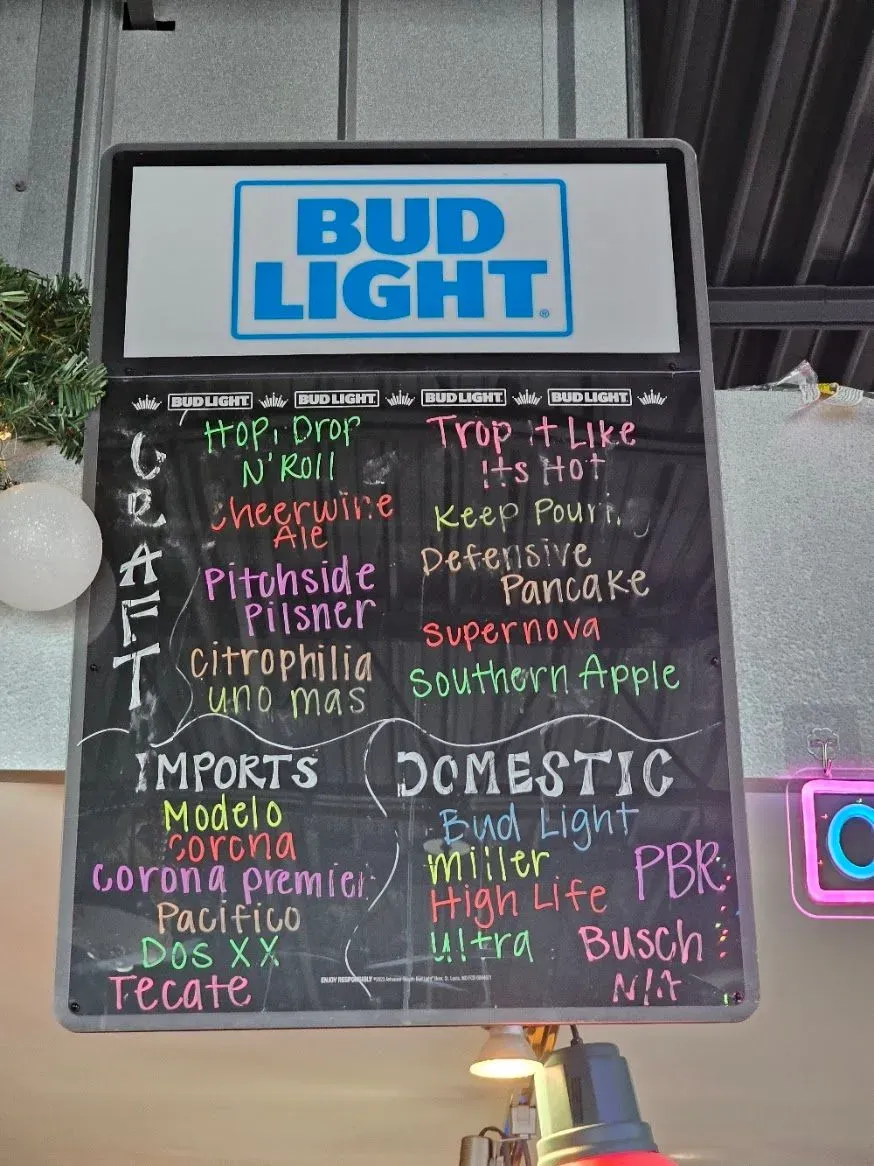 BUD
LIGHT®
BUD LIGHT BUD LIGHT BUD LIGHT BUD LIGHT
CRAFT
Hop, Drop
N' Roll
Cheerwine
Ale
Pitchside
Pilsner
Citrophilia
uno mas
Trop it Like
its Hot
Keep
Defensive
Pancake
Supernova
Southern Apple
IMPORTS
Modelo
Corona
Corona premier
Pacifico
Dos XX
Tecate
DOMESTIC
Bud Light
miller
High Life
Ultra
PBR
Busch
ENJOY RESPONSIBLY